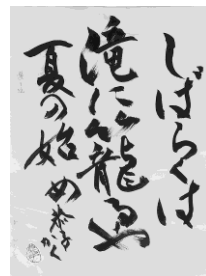 しばらくは
滝に籠るや
夏の始め
かく